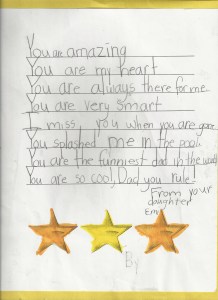 You are amazing
You are my heart
You are always there for me.
You are very smart
I miss you when you are gone
You splashed me in the pool.
You are the funniest dad in the world
You are so cool, Dad you rule!
From your
daughter
Em
By